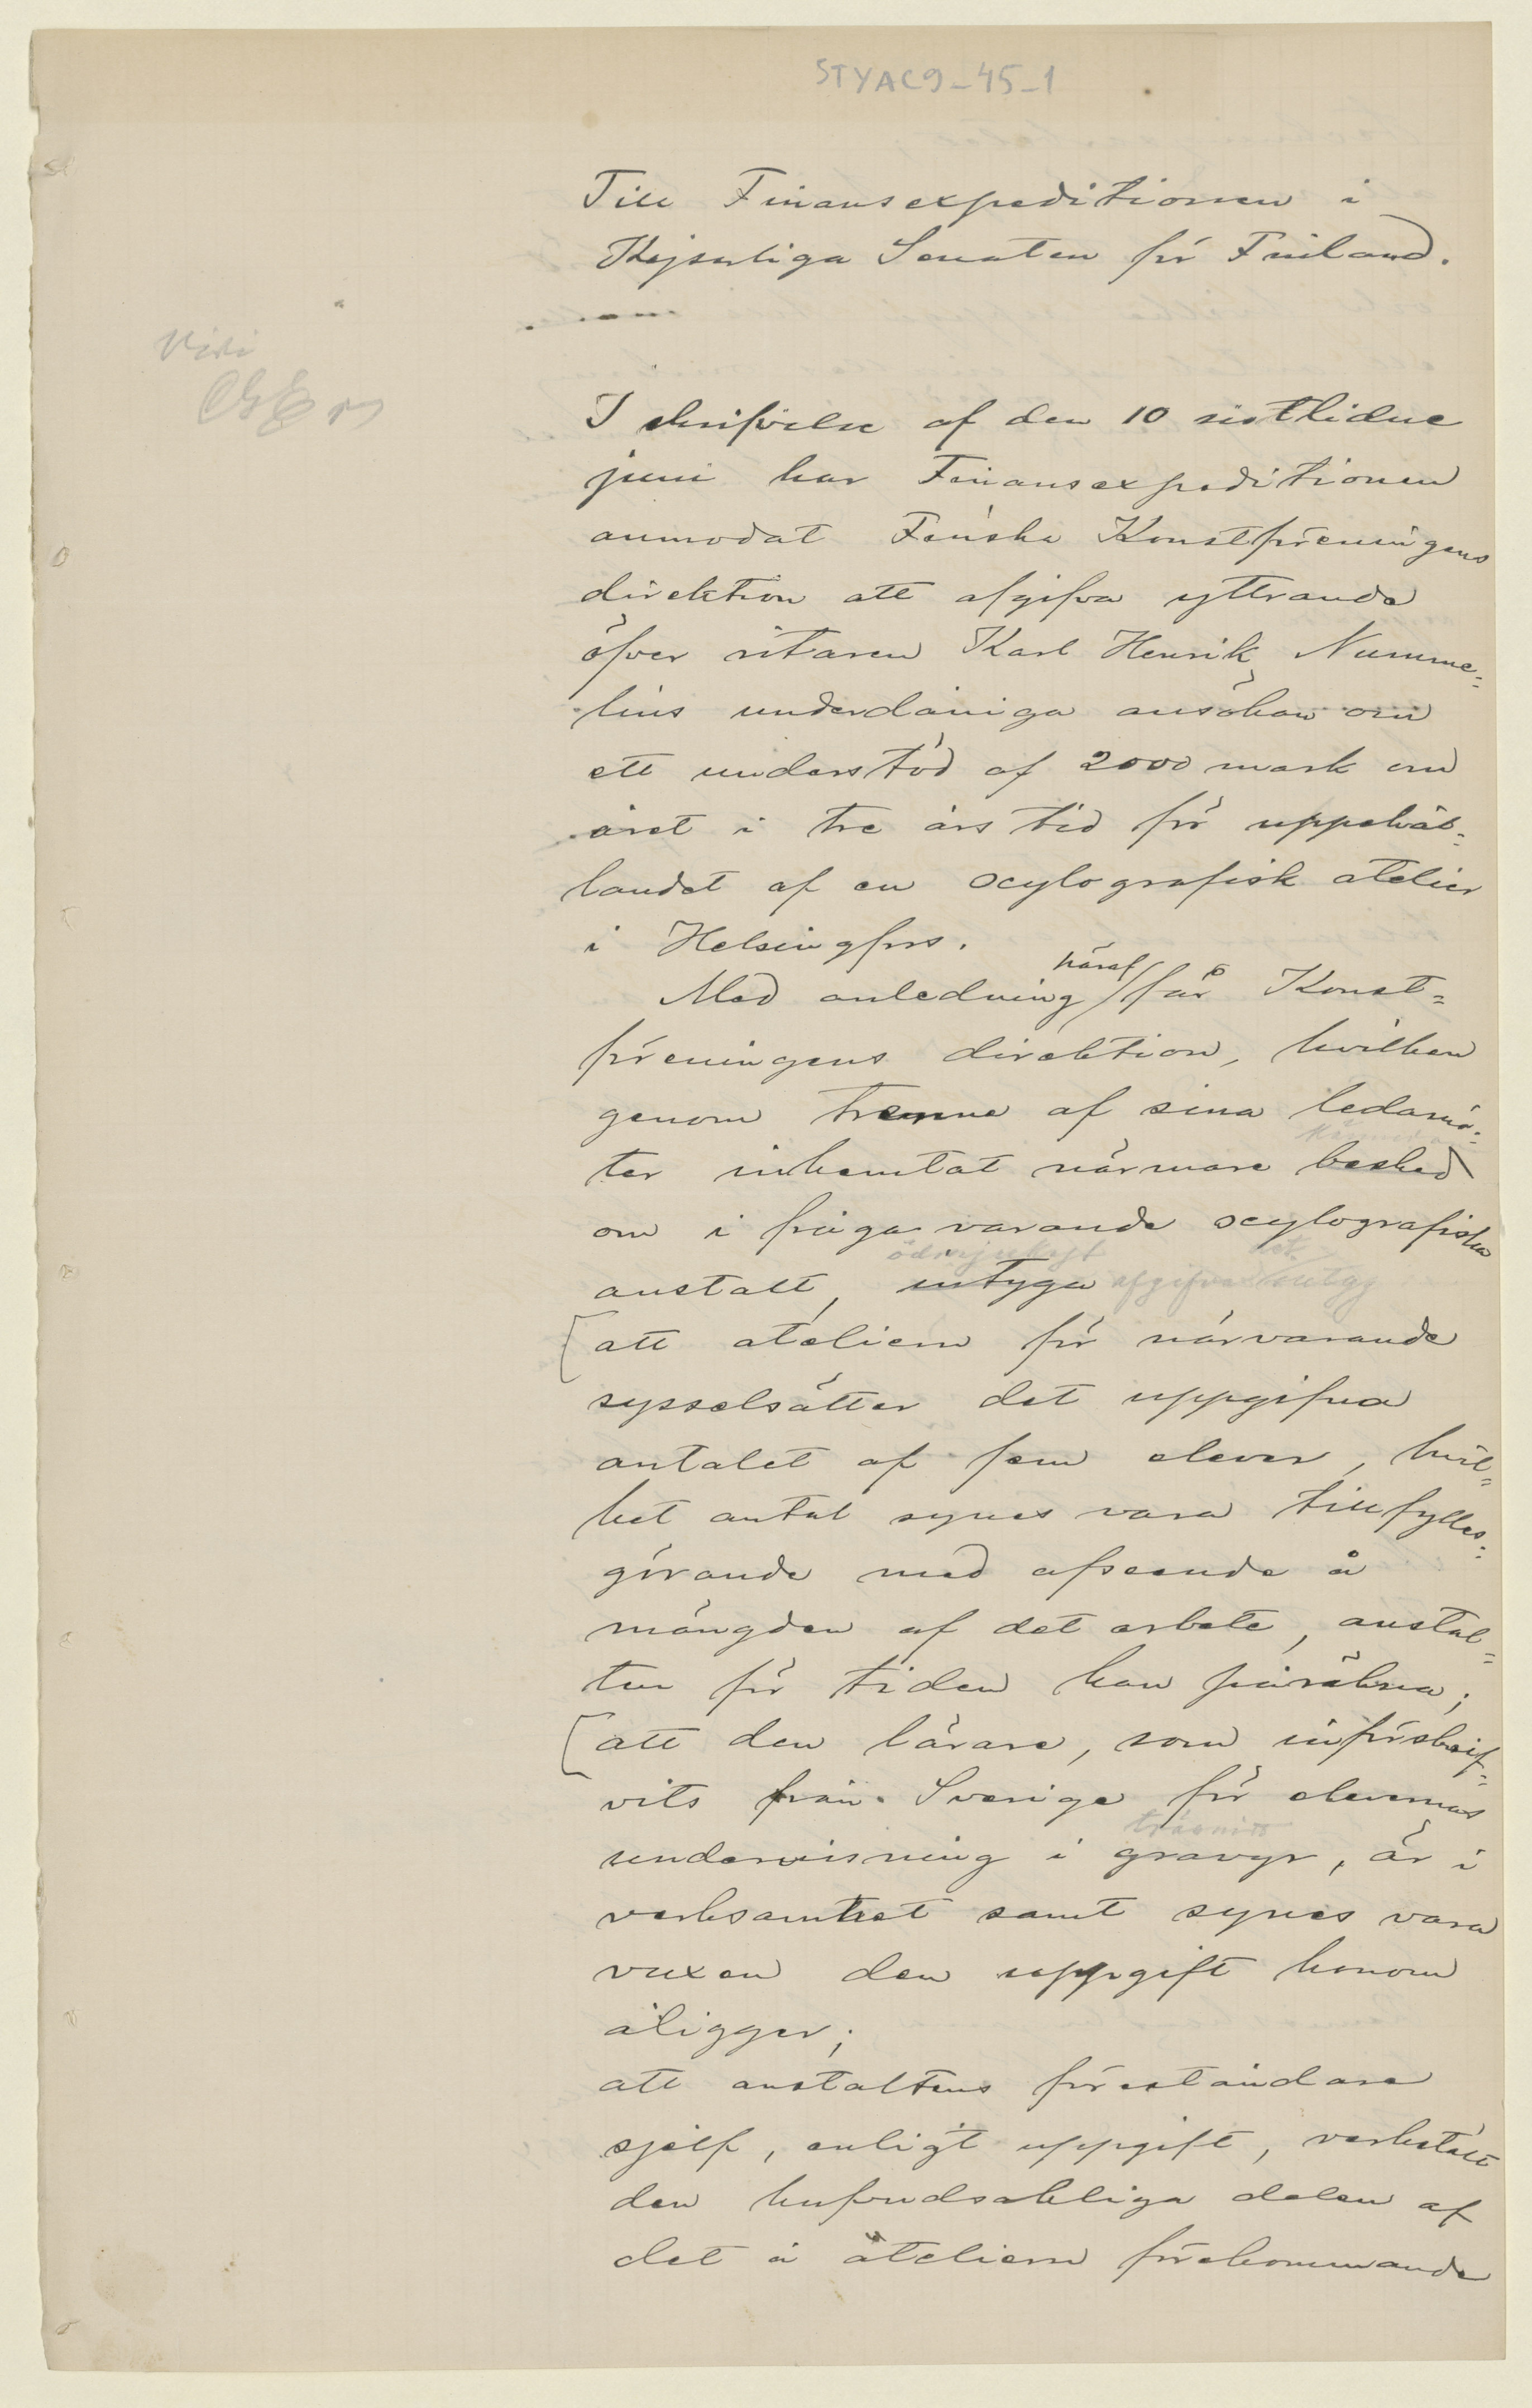 STYAC9-45-1
Till Finansexpeditionen i
Kejserliga Senaten för Finland.
Vidi
I skrifvelse af den 10 sistlidne
juni har Finansexpeditionen
anmodat Finska Konstföreningens
direktion att afgifva yttrande
öfver ritaren Karl Henrik Numme=
lins underdåniga ansökan om
ett understöd af 2000 mark om
året i tre års tid för uppehål=
landet af en xylografisk atelier
i Helsingfors.
häraf
Med anledning får Konst=
föreningens direktion, hvilken
genom trenne af sina ledamö=
ter inhemtat närmare besked
om i fråga varande xylografiska
ödmjukast
anstalt, intyga afgifva intyg
att ateliern för närvarande
sysselsätter det uppgifna
antalet af fem elever, hvil=
ket antal synes vara tillfylles=
görande med afseende å
mängden af det arbete, anstal=
ten för tiden kan påräkna;
att den lärare, som införskrif=
vits från Sverige för elevernas
träsnitt
undervisning i gravyr, är i
verksamhet samt synes vara
vuxen den uppgift honom
åligger;
att anstaltens föreståndare
sjelf, enligt uppgift, verkstält
den hufvudsakliga delen af
det å ateliern förekommande